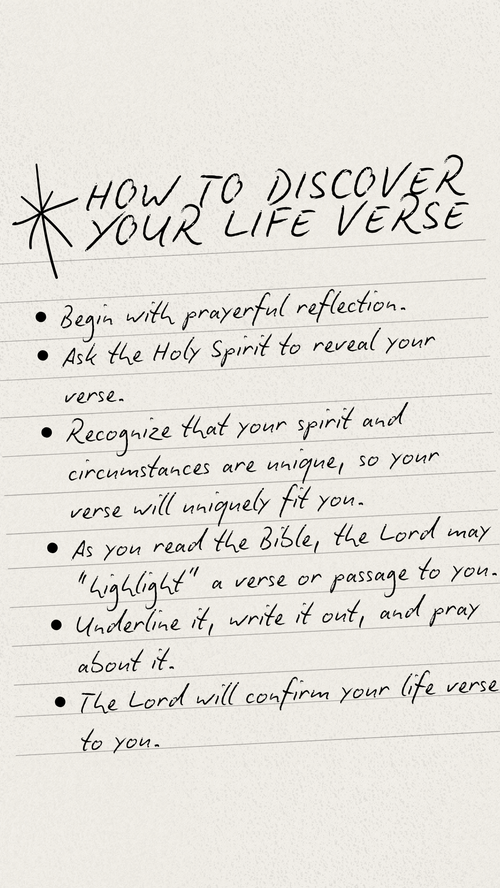 HOW TO DISCOVER
YOUR LIFE VERSE
• Begin with prayerful reflection.
• Ask the Holy Spirit to reveal your
verse.
• Recognize that your spirit and
circumstances are unique, so your
verse will uniquely fit you.
• As you read the Bible, the Lord may
"highlight" a verse or passage to you.
• Underline it, write it out, and pray
about it.
• The Lord will confirm your life verse
to you.